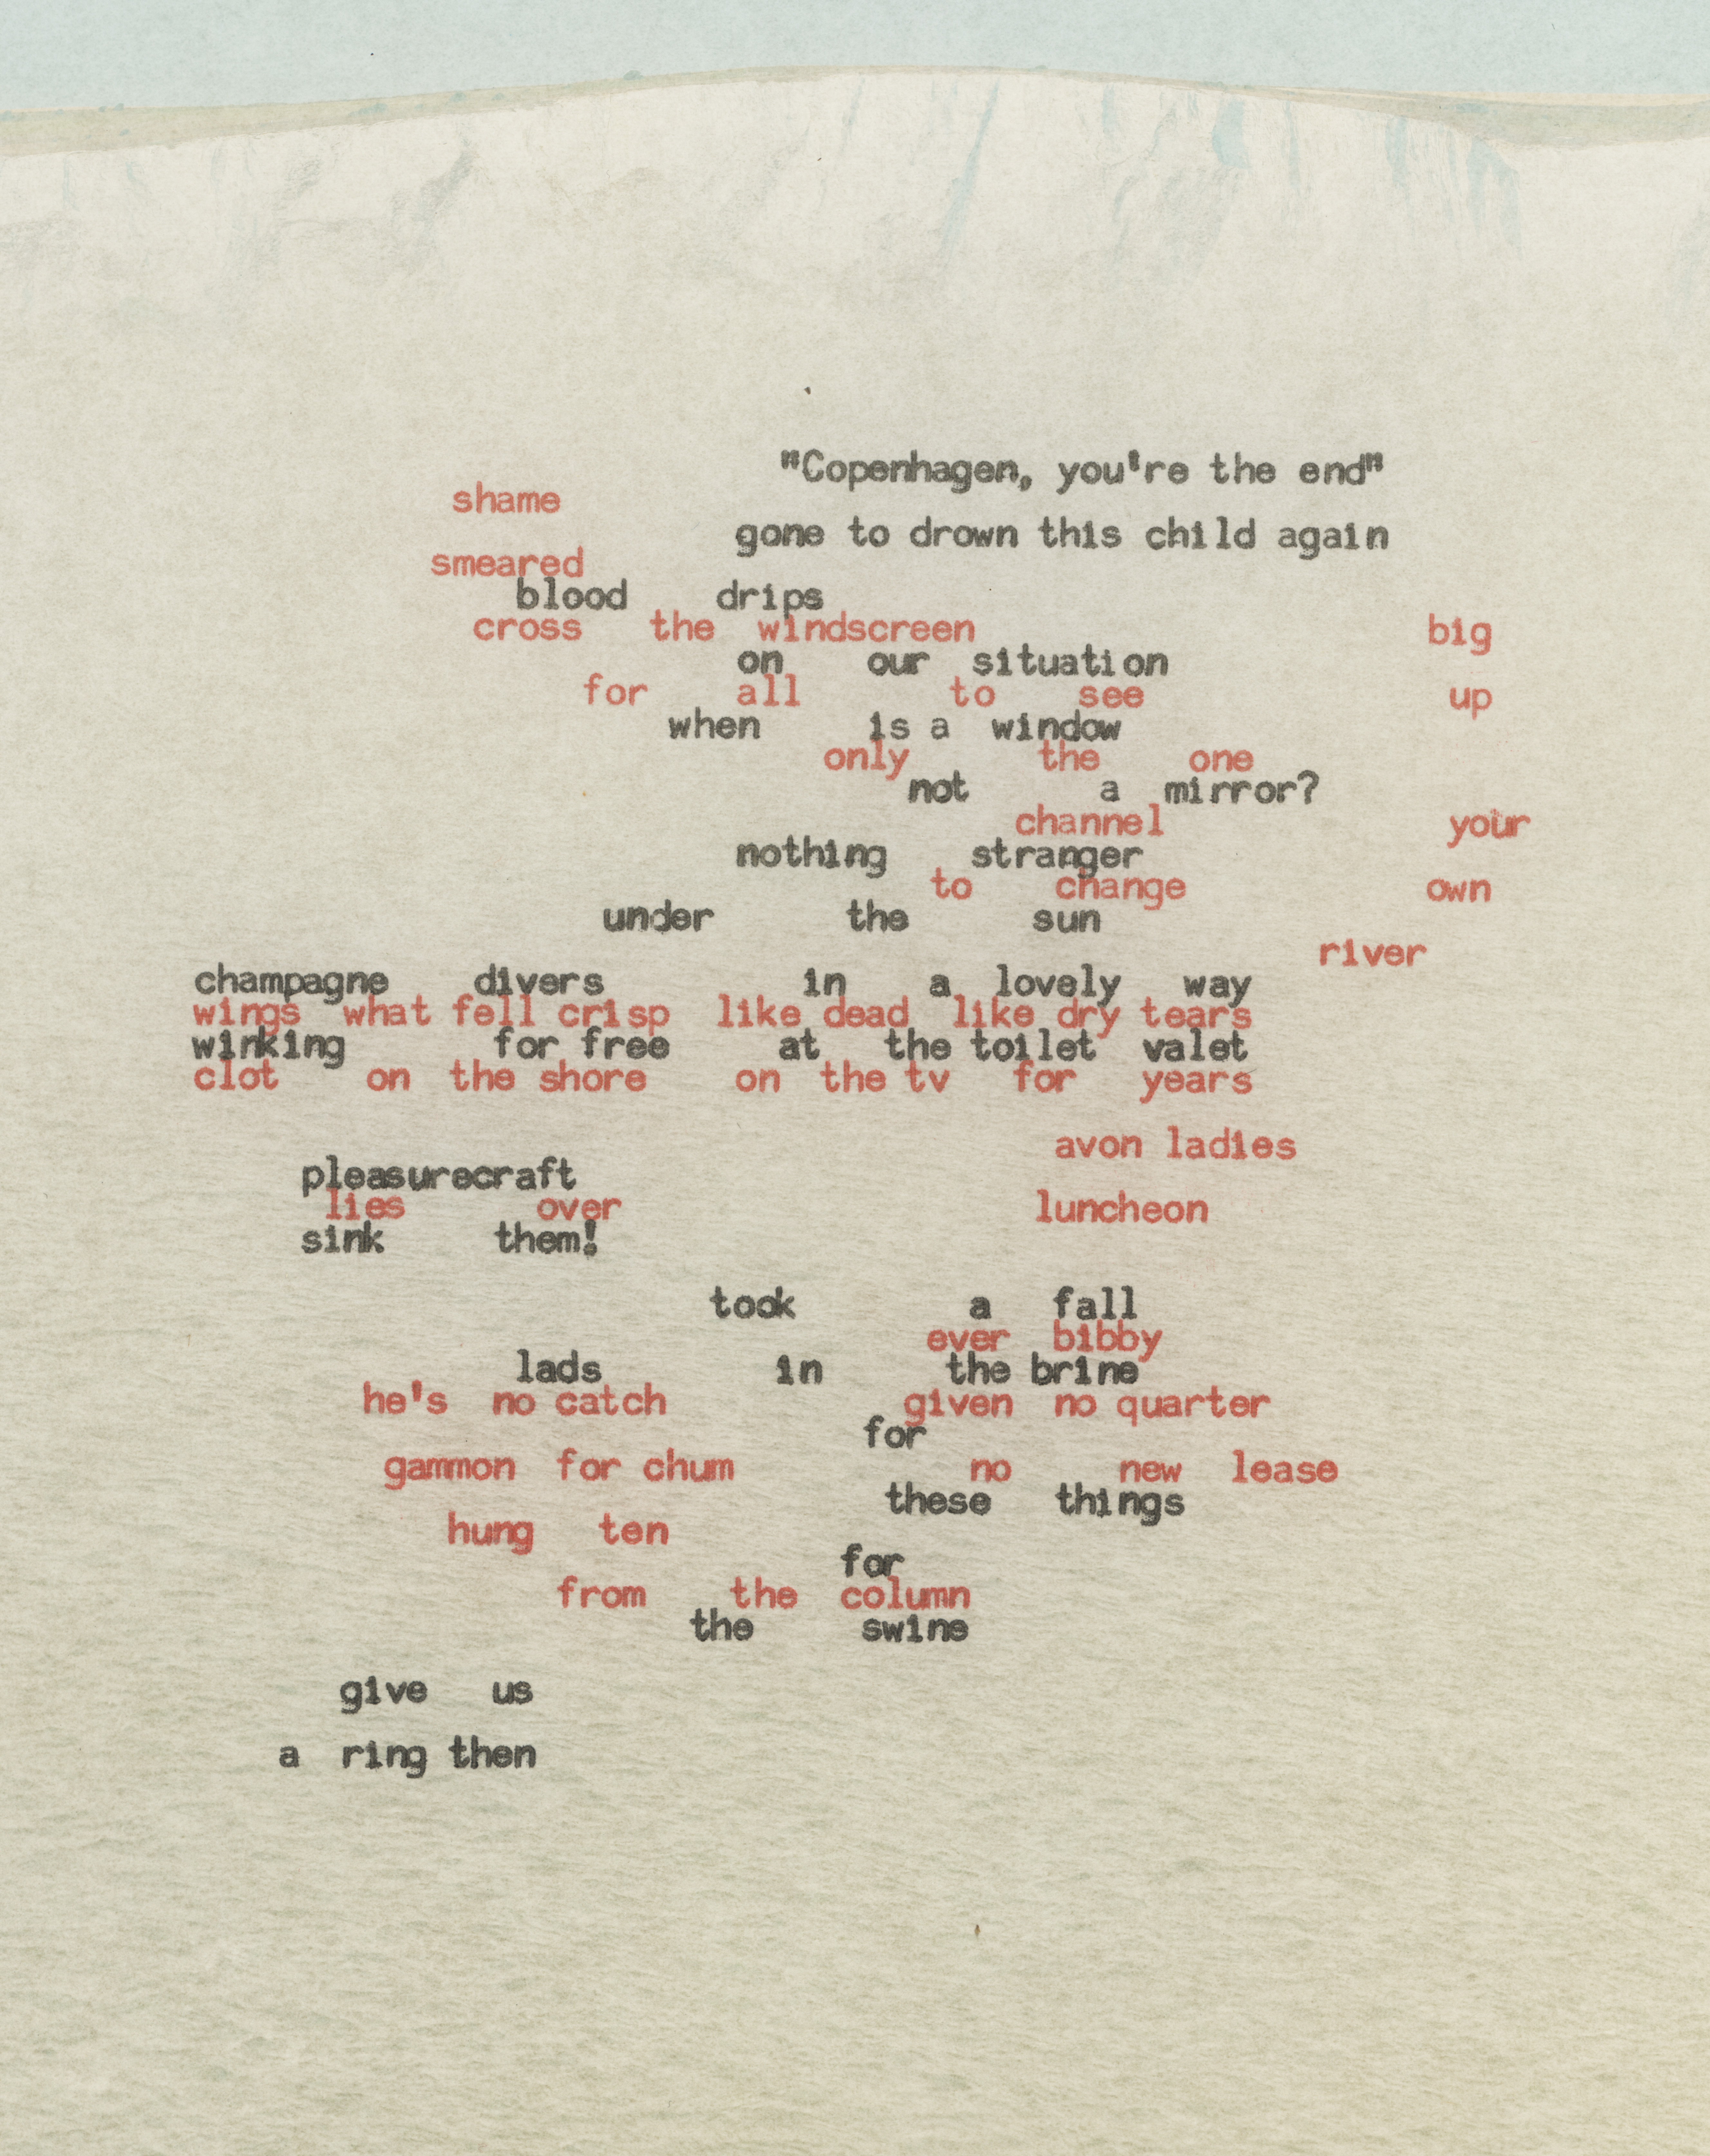 "Copenhagen, you're the end"
shame
gone to drown this child again
smeared
blood drips
cross the windscreen big
on our situation
for all to see up
when is a window
only the one
not a mirror?
channel your
nothing stranger
to change own
under the sun
river
champagne divers in a lovely way
wings what fell crisp like dead like dry tears
winking for free at the toilet valet
clot on the shore on the tv for years
avon ladies
pleasurecraft
lies over luncheon
sink them!
took a fall
ever bibby
lads in the brine
he's no catch given no quarter
for
gammon for chum no new lease
these things
hung ten
for
from the column
the swine
give us
a ring then